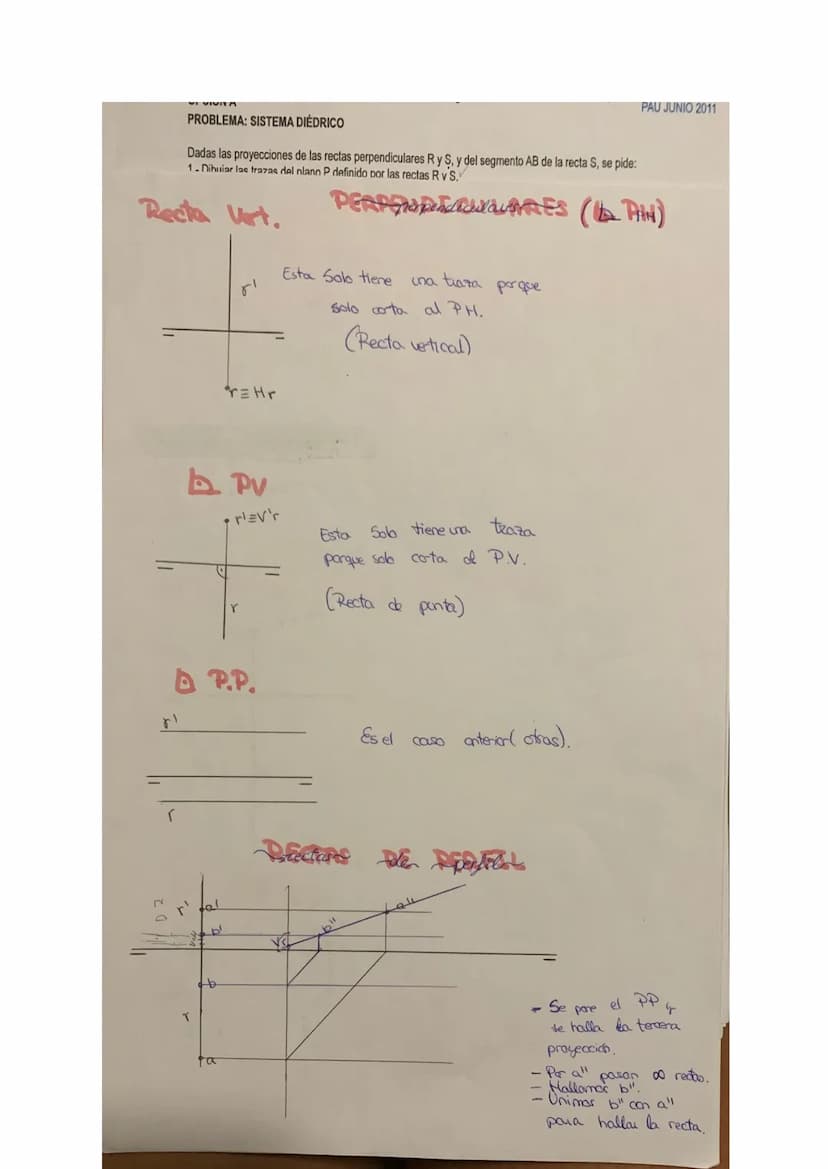 OPCIÓN A
PAU JUNIO 2011
PROBLEMA: SISTEMA DIÉDRICO
Dadas las proyecciones de las rectas perpendiculares R y S, y del segmento AB de la recta S, se pide:
1.- Dibujar las trazas del plano P definido por las rectas R y S.
Recta Vert.
PERPENDICULARES (⊾ PH)
perpendiculares
r'
Esta solo tiene una traza porque
solo corta al PH.
(Recta vertical)
r≡Hr
PV
r'≡V'r
Esta solo tiene una traza
porque solo corta al P.V.
(Recta de punta)
r
P.P.
r'
Es el caso anterior (otras).
r
RECTAS DE PERFIL
rectas de perfil
r'
a'
a"
b'
b"
b
r
a
- Se pone el PP y
se halla la tercera
proyección.
- Por a" pasan ∞ rectas.
- Hallamos b".
- Unimos b" con a"
para hallar la recta.